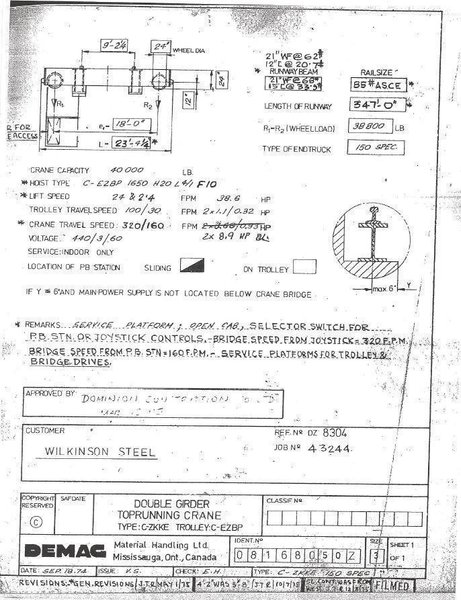 9'-2¼"
24"
WHEEL DIA
24"
12"
R₁
R₂
R FOR
ACCESS
18'-0"
L= 23'-4¼"
21" WF @ 62#
12"[ @ 20.7#
* RUNWAY BEAM
21" WF @ 68#
15"[ @ 33.9#
RAILSIZE
85# ASCE
LENGTH OF RUNWAY
347'-0"
R₁-R₂ (WHEELLOAD)
38800 LB
TYPE OF ENDTRUCK
150 SPEC.
CRANE CAPACITY 40000 LB.
* HOIST TYPE C-EZBP 1650 H20 L4/1 F10
* LIFT SPEED 24 & 2.4 FPM 38.6 HP
TROLLEY TRAVEL SPEED 100/30 FPM 2x1.1/0.32 HP
* CRANE TRAVEL SPEED: 320/160 FPM HP
2x 8.9 HP
VOLTAGE: 440/3/60
SERVICE: INDOOR ONLY
LOCATION OF PB STATION SLIDING ON TROLLEY
max 6" Y
IF Y = 6" AND MAIN POWER SUPPLY IS NOT LOCATED BELOW CRANE BRIDGE
* REMARKS SERVICE PLATFORM, OPEN CAB, SELECTOR SWITCH FOR
P.B. STN OR JOYSTICK CONTROLS. - BRIDGE SPEED FROM JOYSTICK = 320 F.P.M.
BRIDGE SPEED FROM P.B. STN = 160 F.P.M. - SERVICE PLATFORMS FOR TROLLEY &
BRIDGE DRIVES.
APPROVED BY: DOMINION
CUSTOMER
WILKINSON STEEL
REF. Nº DZ 8304
JOB Nº 43244.
COPYRIGHT RESERVED
©
SAFDATE
DOUBLE GIRDER
TOPRUNNING CRANE
TYPE: C-ZKKE TROLLEY: C-EZBP
CLASSIF Nº
DEMAG
Material Handling Ltd.
Mississauga, Ont., Canada
IDENT. Nº
08168050Z
SIZE
3
SHEET 1
OF 1
DATE: SEP. 18.74 ISSUE K.S. CHECK: E.H. TYPE: C-ZKKE 150 SPEC
REVISIONS: *GEN. REVISIONS/J.T.R. MAY 1/75 FILMED